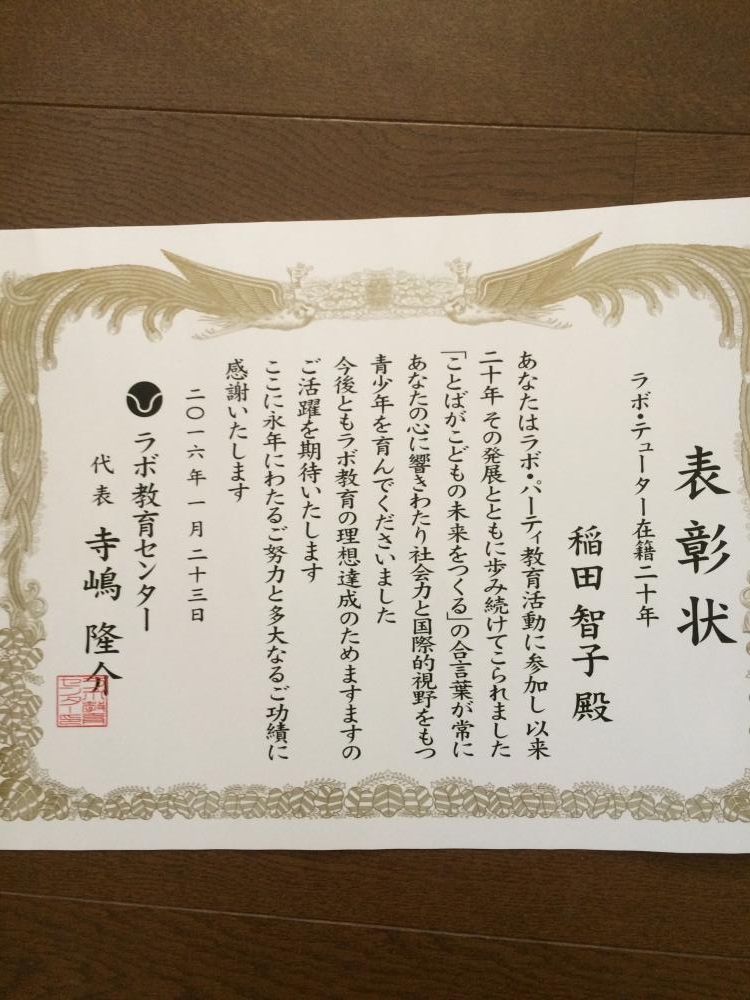 表彰状
ラボ・テューター在籍二十年
稲田智子殿
あなたはラボ・パーティ教育活動に参加し以来
二十年 その発展とともに歩み続けてこられました
「ことばがこどもの未来をつくる」の合言葉が常に
あなたの心に響きわたり社会力と国際的視野をもつ
青少年を育んでくださいました
今後ともラボ教育の理想達成のためますますの
ご活躍を期待いたします
ここに永年にわたるご努力と多大なるご功績に
感謝いたします
二〇一六年一月二十三日
ラボ教育センター
代表 寺嶋隆介
ラボ教育
センター印